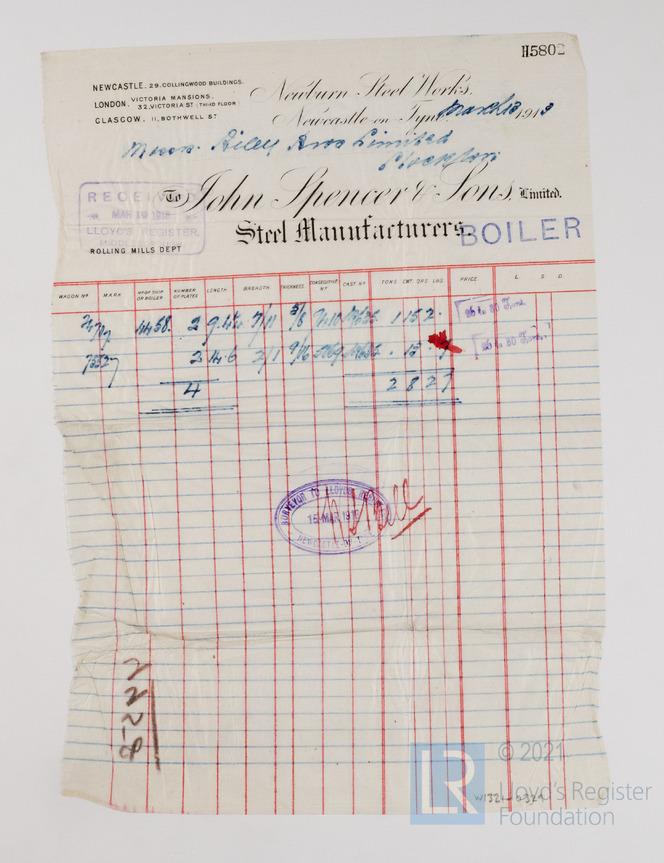 H5802
NEWCASTLE. 29. COLLINGWOOD BUILDINGS.
LONDON. VICTORIA MANSIONS. 32, VICTORIA ST (THIRD FLOOR)
GLASGOW. 11, BOTHWELL ST
Newburn Steel Works.
Newcastle-on-Tyne March 13 1913
Messrs. Riley Bros Limited
Stockton
To John Spencer & Sons, Limited.
Steel Manufacturers
BOILER
RECEIVED
MAR
LLOYD'S REGISTER,
ROLLING MILLS DEPT
WAGON No MARK No OF SHIP OR BOILER NUMBER OF PLATES LENGTH BREADTH THICKNESS CONSECUTIVE No CAST No TONS CWT. QRS LBS. PRICE. £ S D
4458. 2 7/11 5/8 1 15 2 26 to 30 Tons.
2 14.6 2/1 9/16 26 to 30 Tons.
4 2 8 2 7
SURVEYOR TO LLOYD'S REGISTER
15 MAR 191
NEWCASTLE-ON-TYNE
222-8
LR
© 2021
Lloyd's Register
Foundation